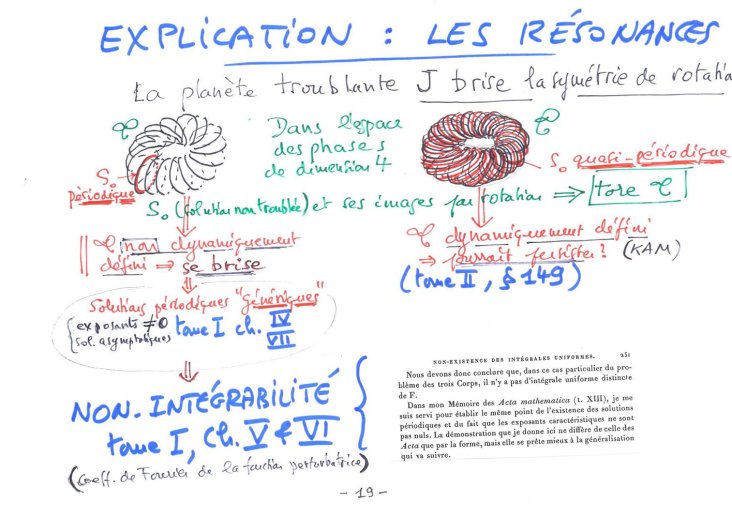 EXPLICATION : LES RÉSONANCES
La planète troublante J brise la symétrie de rotatiọ
𝒞
Dans l'espace
des phases
de dimension 4
𝒞
S₀
périodique
S₀ quasi-périodique
S₀ (solution non troublée) et ses images par rotation ⇒ tore 𝒞
𝒞 non dynamiquement
défini ⇒ se brise
𝒞 dynamiquement défini
⇒ pourrait persister? (KAM)
(tome II, § 149)
Solutions périodiques "génériques"
{ exposants ≠ 0
sol. asymptotiques
tome I ch. IV
VII
NON-INTÉGRABILITÉ
tome I, Ch. V & VI
(coeff. de Fourier de la fonction perturbatrice)
NON-EXISTENCE DES INTÉGRALES UNIFORMES. 251
Nous devons donc conclure que, dans ce cas particulier du pro-
blème des trois Corps, il n'y a pas d'intégrale uniforme distincte
de F.
Dans mon Mémoire des Acta mathematica (t. XIII), je me
suis servi pour établir le même point de l'existence des solutions
périodiques et du fait que les exposants caractéristiques ne sont
pas nuls. La démonstration que je donne ici ne diffère de celle des
Acta que par la forme, mais elle se prête mieux à la généralisation
qui va suivre.
- 19 -